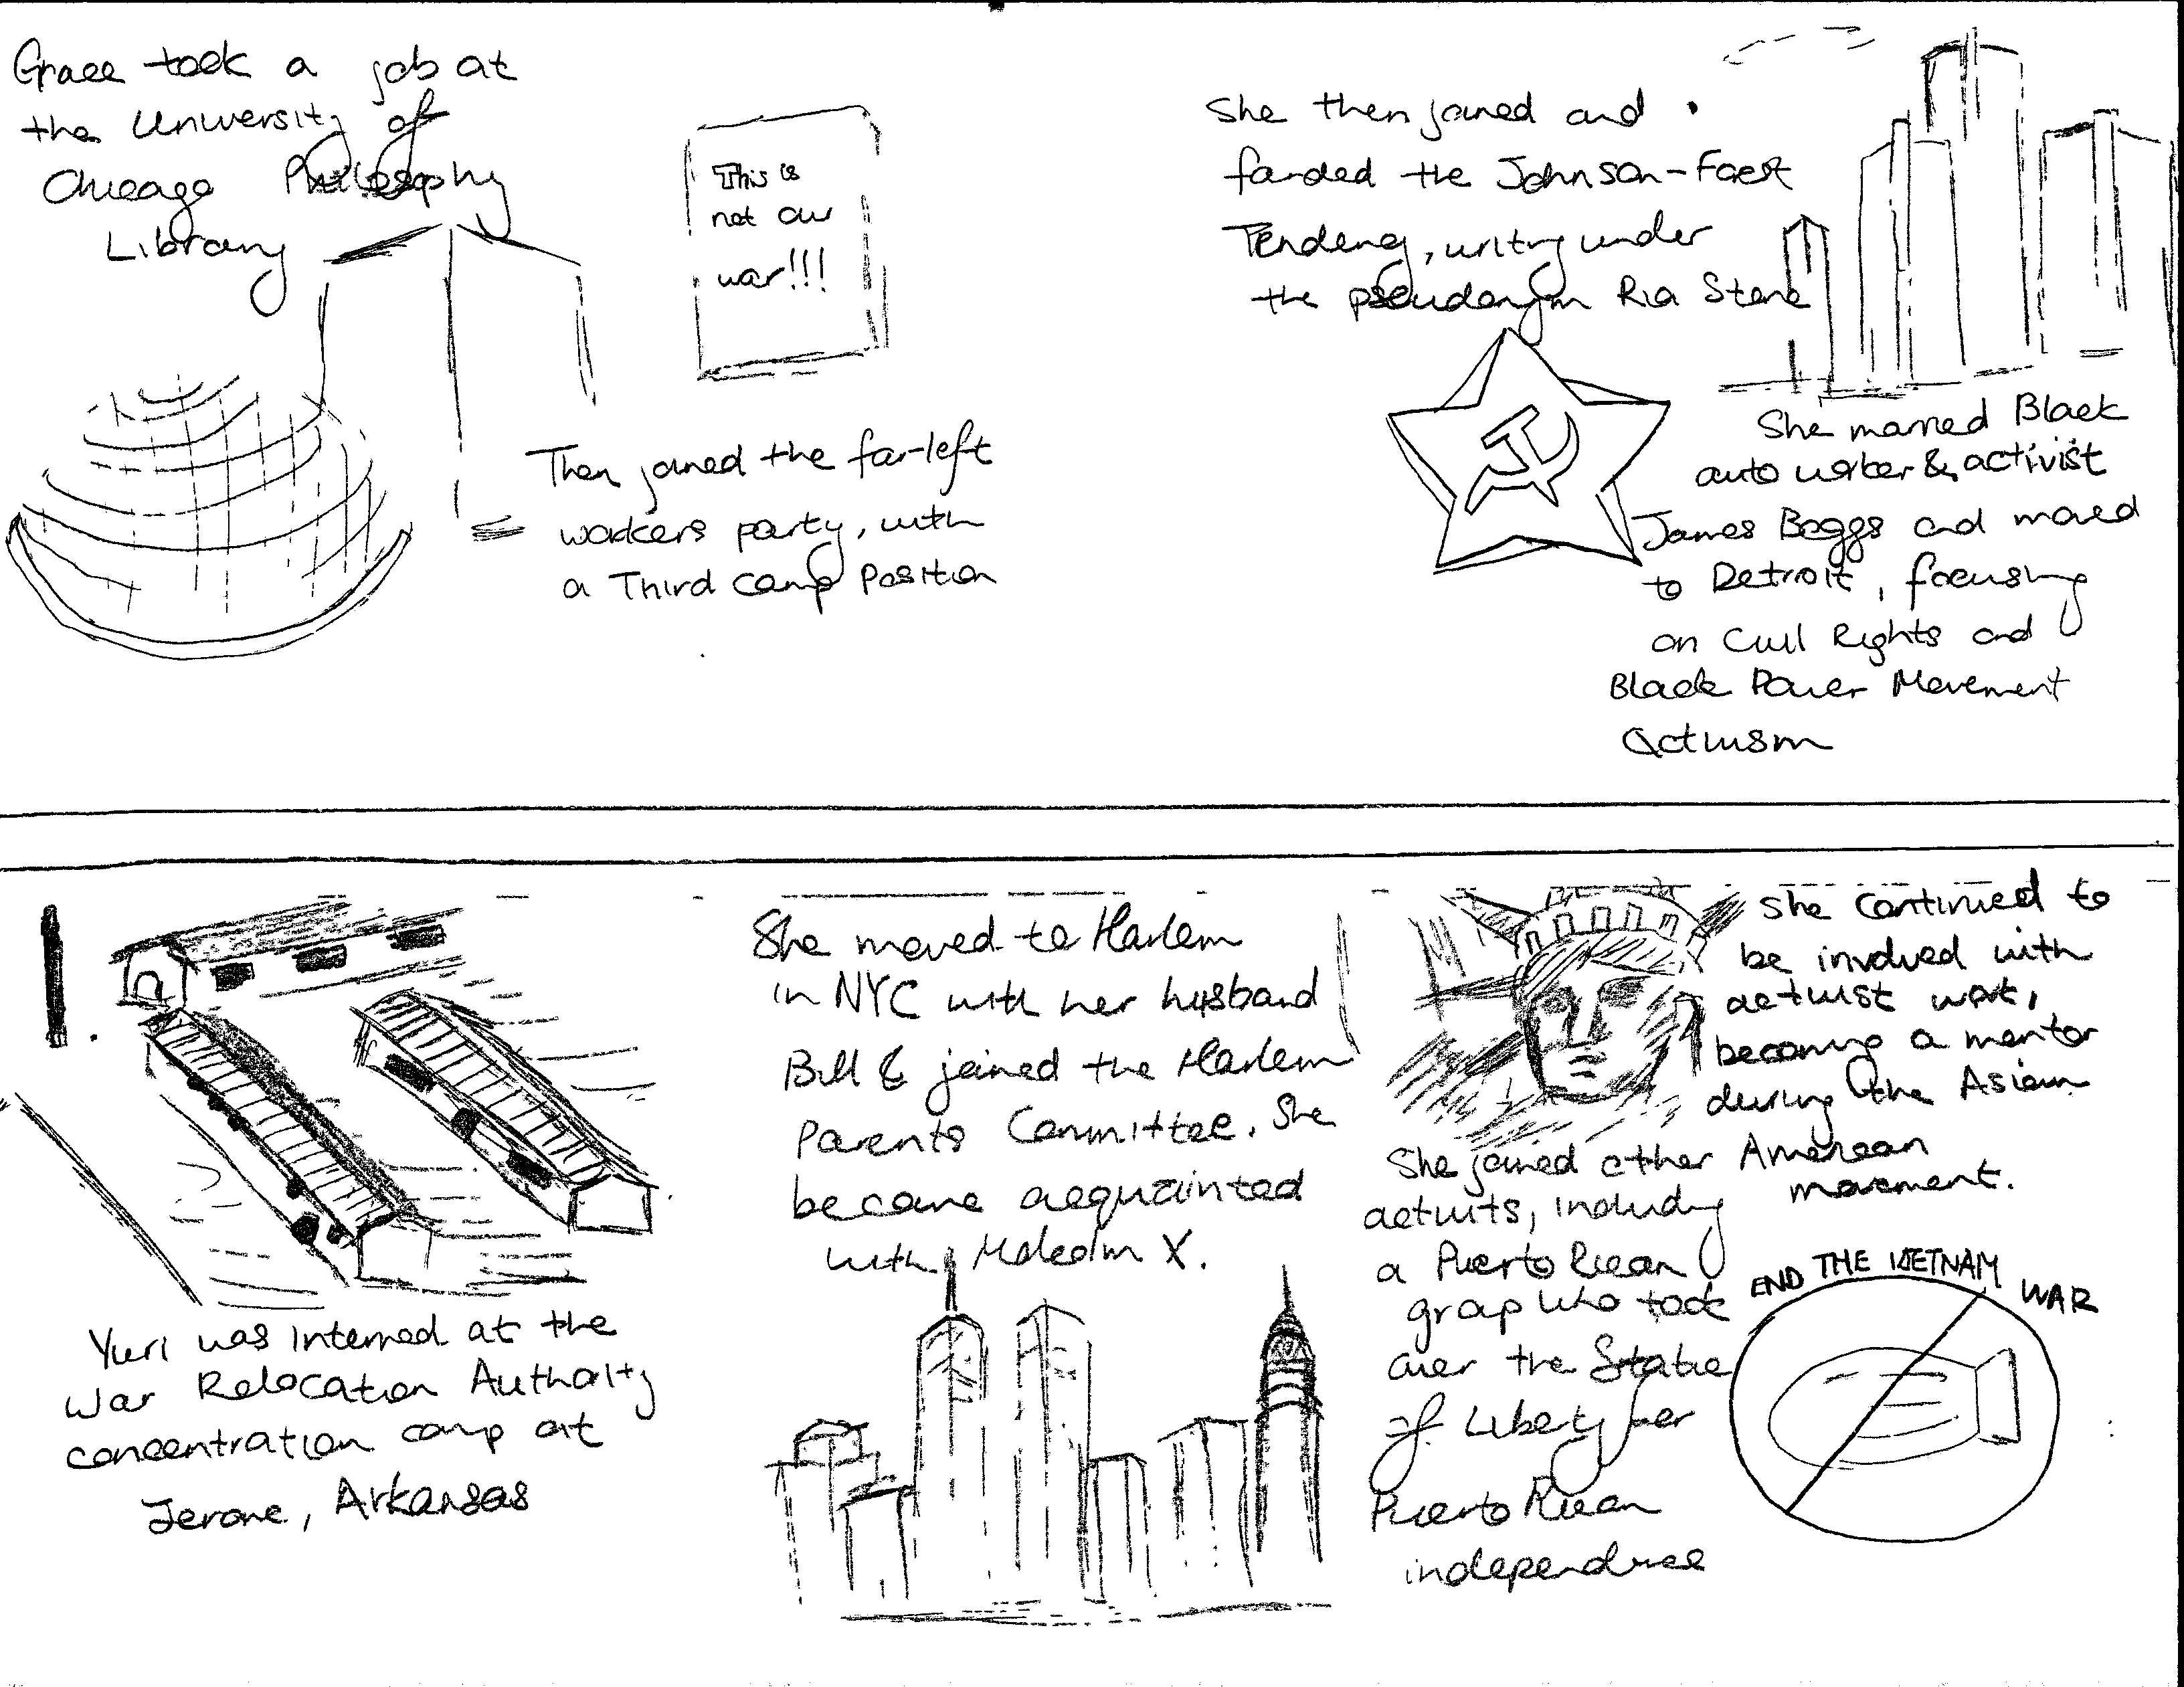 Grace took a job at
the University of
Chicago Philosophy
Library
This is
not our
war!!!
Then joined the far-left
workers party, with
a Third Camp Position
She then joined and
founded the Johnson-Forest
Tendency, writing under
the pseudonym Ria Stone
She married Black
auto worker & activist
James Boggs and moved
to Detroit, focusing
on Civil Rights and
Black Power Movement
Activism
Yuri was interned at the
War Relocation Authority
concentration camp at
Jerome, Arkansas
She moved to Harlem
in NYC with her husband
Bill & joined the Harlem
Parents Committee. She
became acquainted
with Malcolm X.
She continued to
be involved with
activist work,
becoming a mentor
during the Asian
American
movement.
She joined other
activits, including
a Puerto Rican
group who took
over the Statue
of Liberty for
Puerto Rican
independence
END THE VIETNAM
WAR